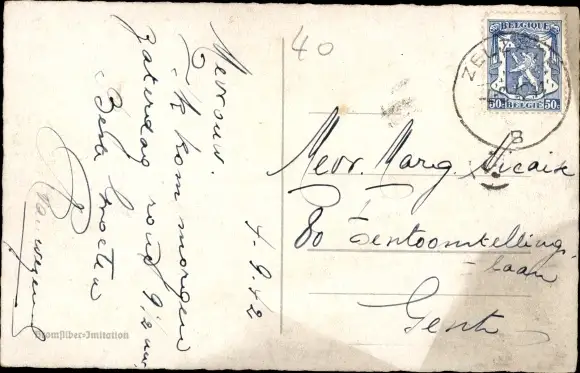 40
Mevrouw.
Ik kom morgen
Zaterdag rond 9 1/2 uur
Beste Groeten
4.9.42
Bromsilber-Imitation
BELGIQUE
50c BELGIE 50c
ZEL
B
Mevr. Marg. Nicaise
80 Tentoonstelling
laan
Gent